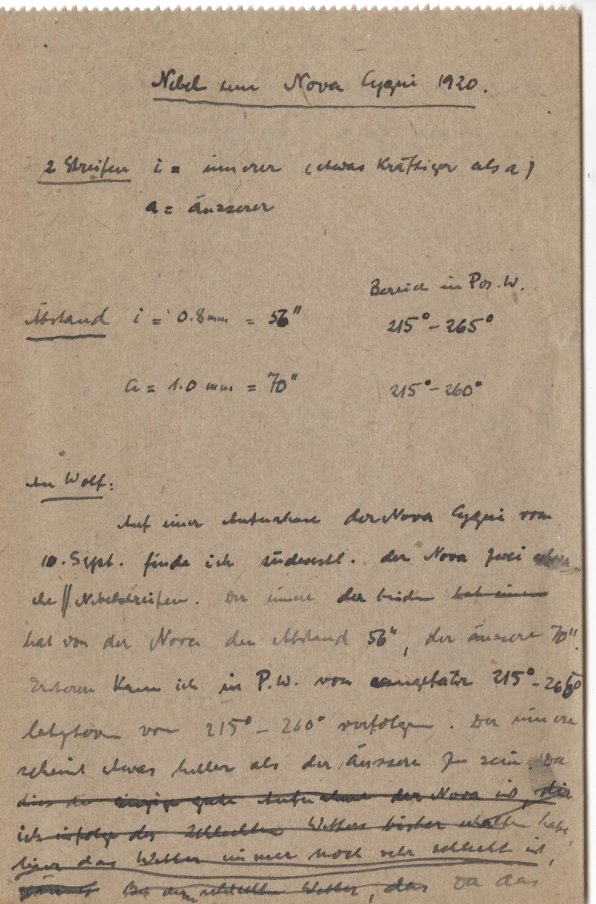 Nebel um Nova Cygni 1920.
2 Streifen i = innerer (etwas kräftiger als a)
a = äusserer
Bereich in Pos. W.
Abstand i = 0.8 mm = 56" 215° - 265°
a = 1.0 mm = 70" 215° - 260°
An Wolf:
Auf einer Aufnahme der Nova Cygni vom
10. Sept. finde ich südwestl. der Nova zwei
|| Nebelstreifen. Der innere der beiden hat einen
hat von der Nova den Abstand 56", der äussere 70".
Ersteren kann ich in P.W. von ungefähr 215° - 265°
letzteren von 215° - 260° verfolgen. Der innere
scheint etwas heller als der äussere zu sein. Da
dies die einzige gute Aufnahme der Nova ist, die
ich infolge des schlechten Wetters bisher erhalten habe,
hier das Wetter immer noch sehr schlecht ist,
Bei dem schlechten Wetter, das Da das